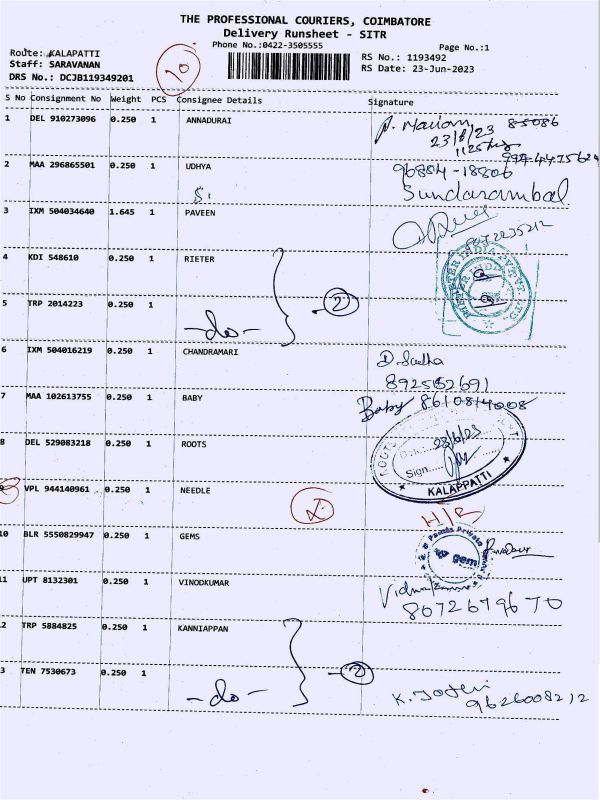 THE PROFESSIONAL COURIERS, COIMBATORE
Delivery Runsheet - SITR
Phone No.:0422-3505555
Page No.:1
Route: KALAPATTI
Staff: SARAVANAN
DRS No.: DCJB119349201
10
RS No.: 1193492
RS Date: 23-Jun-2023
S No Consignment No Weight PCS Consignee Details Signature
1 DEL 910273096 0.250 1 ANNADURAI
23/6/23
2 MAA 296865501 0.250 1 UDHYA
96884-18806
Sundarambal
3 IXM 504034640 1.645 1 PAVEEN
4 KDI 548610 0.250 1 RIETER
2
5 TRP 2014223 0.250 1
-do-
6 IXM 504016219 0.250 1 CHANDRAMARI
7 MAA 102613755 0.250 1 BABY
Baby 8610814008
8 DEL 529083218 0.250 1 ROOTS
23/6/23
Sign
KALAPPATTI
9 VPL 944140961 0.250 1 NEEDLE
10 BLR 5550829947 0.250 1 GEMS
gem
11 UPT 8132301 0.250 1 VINODKUMAR
8072679670
2 TRP 5884825 0.250 1 KANNIAPPAN
2
3 TEN 7530673 0.250 1
-do-
9626008212